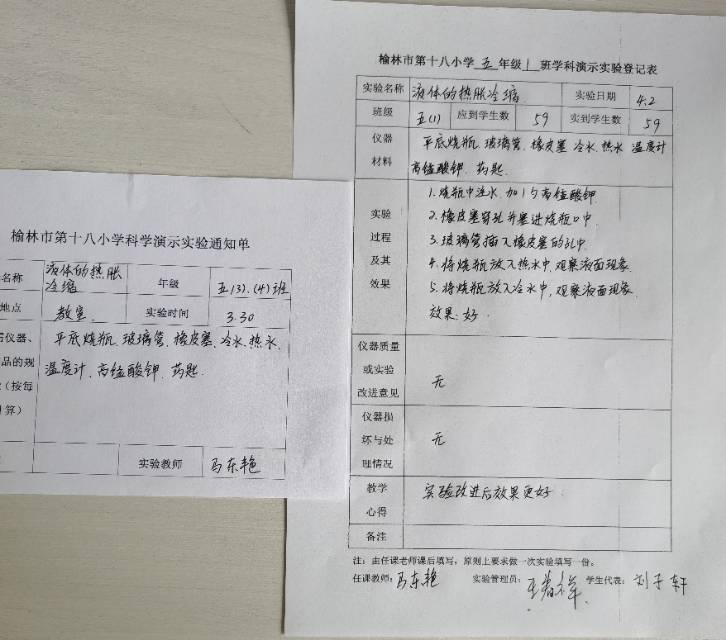 榆林市第十八小学科学演示实验通知单
名称 液体的热胀冷缩 年级 五(3).(4)班
地点 教室 实验时间 3.30
仪器、 平底烧瓶、玻璃管、橡皮塞、冷水、热水、
品的规 温度计、高锰酸钾、药匙.
(按每
算)
实验教师 马东艳
榆林市第十八小学五年级1班学科演示实验登记表
实验名称 液体的热胀冷缩 实验日期 4.2
班级 五(1) 应到学生数 59 实到学生数 59
仪器 平底烧瓶、玻璃管、橡皮塞、冷水、热水、温度计
材料 高锰酸钾、药匙.
1.烧瓶中注水,加1勺高锰酸钾
实验 2.橡皮塞穿孔并塞进烧瓶口中
过程 3.玻璃管插入橡皮塞的孔中
及其 4.将烧瓶放入热水中,观察液面现象.
效果 5.将烧瓶放入冷水中,观察液面现象.
效果:好.
仪器质量
或实验 无
改进意见
仪器损
坏与处 无
理情况
教学 实验改进后效果更好
心得
备注
注:由任课老师课后填写,原则上要求做一次实验填写一份。
任课教师:马东艳 实验管理员: 学生代表:刘子轩